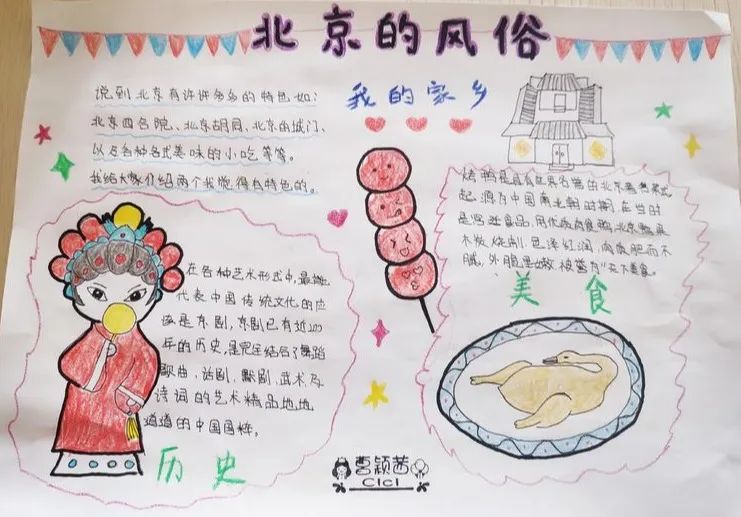 北京的风俗
我的家乡
说到北京有许许多多的特色如:
北京四合院、北京胡同、北京的城门、
以及各种各式美味的小吃等等。
我给大家介绍两个我觉得有特色的。
在各种艺术形式中,最能
代表中国传统文化的应
该是京剧,京剧已有近200
年的历史,是完全结合了舞蹈
歌曲、话剧、默剧、武术及
诗词的艺术精品地地
道道的中国国粹。
历史
烤鸭是具有世界名誉的北京著名菜式
起源于中国南北朝时期,在当时
是宫廷食品,用优质肉食鸭北京鸭果
木炭烧制,色泽红润,肉质肥而不
腻,外脆里嫩,被誉为“天下美食。
美食
曹颖茜
CICI